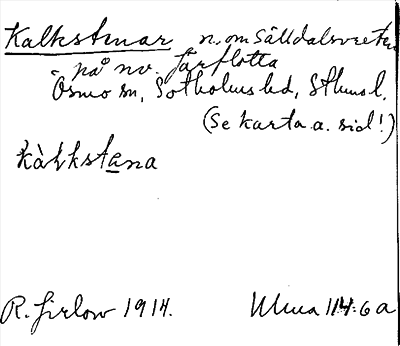 Kalkstenar n. om Sälldalsvreten
på nv. Järflotta
Ösmo sn, Sotholms hd, Sthms l.
(Se karta a. sid!)
kàlkstena
R. Jirlow 1914. Muva 114:6 a